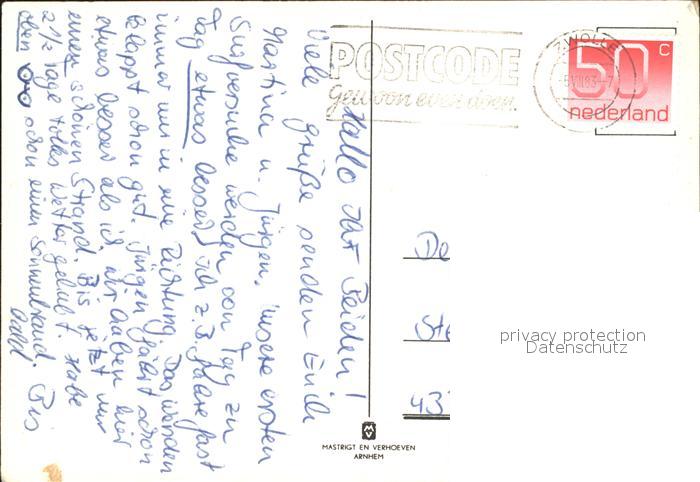 Hallo Ihr Beiden!
Viele Grüße senden Euch
Martina u. Jürgen. Unsere ersten
Surfversuche werden von Tag zu
Tag etwas besser, ich z.B. fahre fast
immer nur in eine Richtung. Das wenden
klappt schon gut. Jürgen fährt schon
etwas besser als ich. Wir haben hier
einen schönen Strand. Bis jetzt nur
2 1/2 Tage tolles Wetter gehabt. Habe
eben schon einen Sonnenbrand. Bis
bald
POSTCODE
gewoon even doen.
ZWOLLE
50 c
nederland
De
Ste
43
privacy protection
Datenschutz
MASTRIGT EN VERHOEVEN
ARNHEM